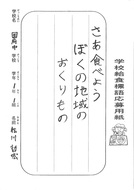 学校給食標語応募用紙
さあ食べよう
ぼくの地域の
おくりもの
学校名
学校
学年
1年
1組
名前